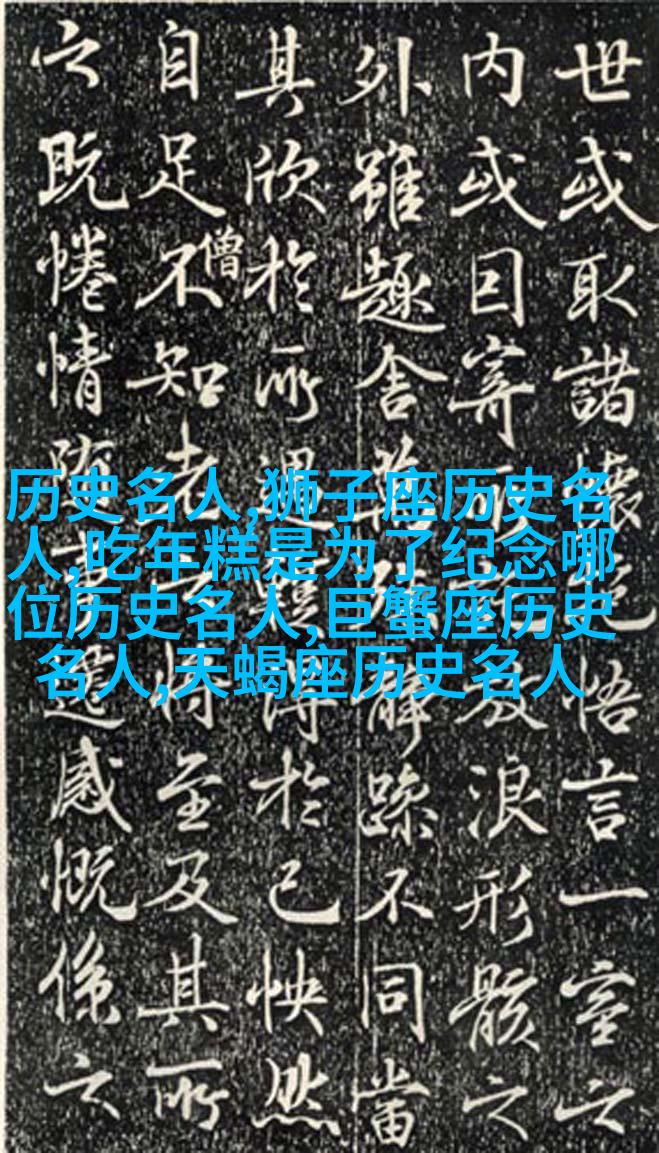 历史名人,狮子座历史名
人,吃年糕是为了纪念哪
位历史名人,巨蟹座历史
名人,天蝎座历史名人
世或取諸懷抱悟言一室之
内或因寄所託放浪形骸之
外雖趣舍萬殊静躁不同當
其欣於所遇蹔得於己怏然
自足不知老之將至及其所
僧
之既惓情隨事遷感慨係之